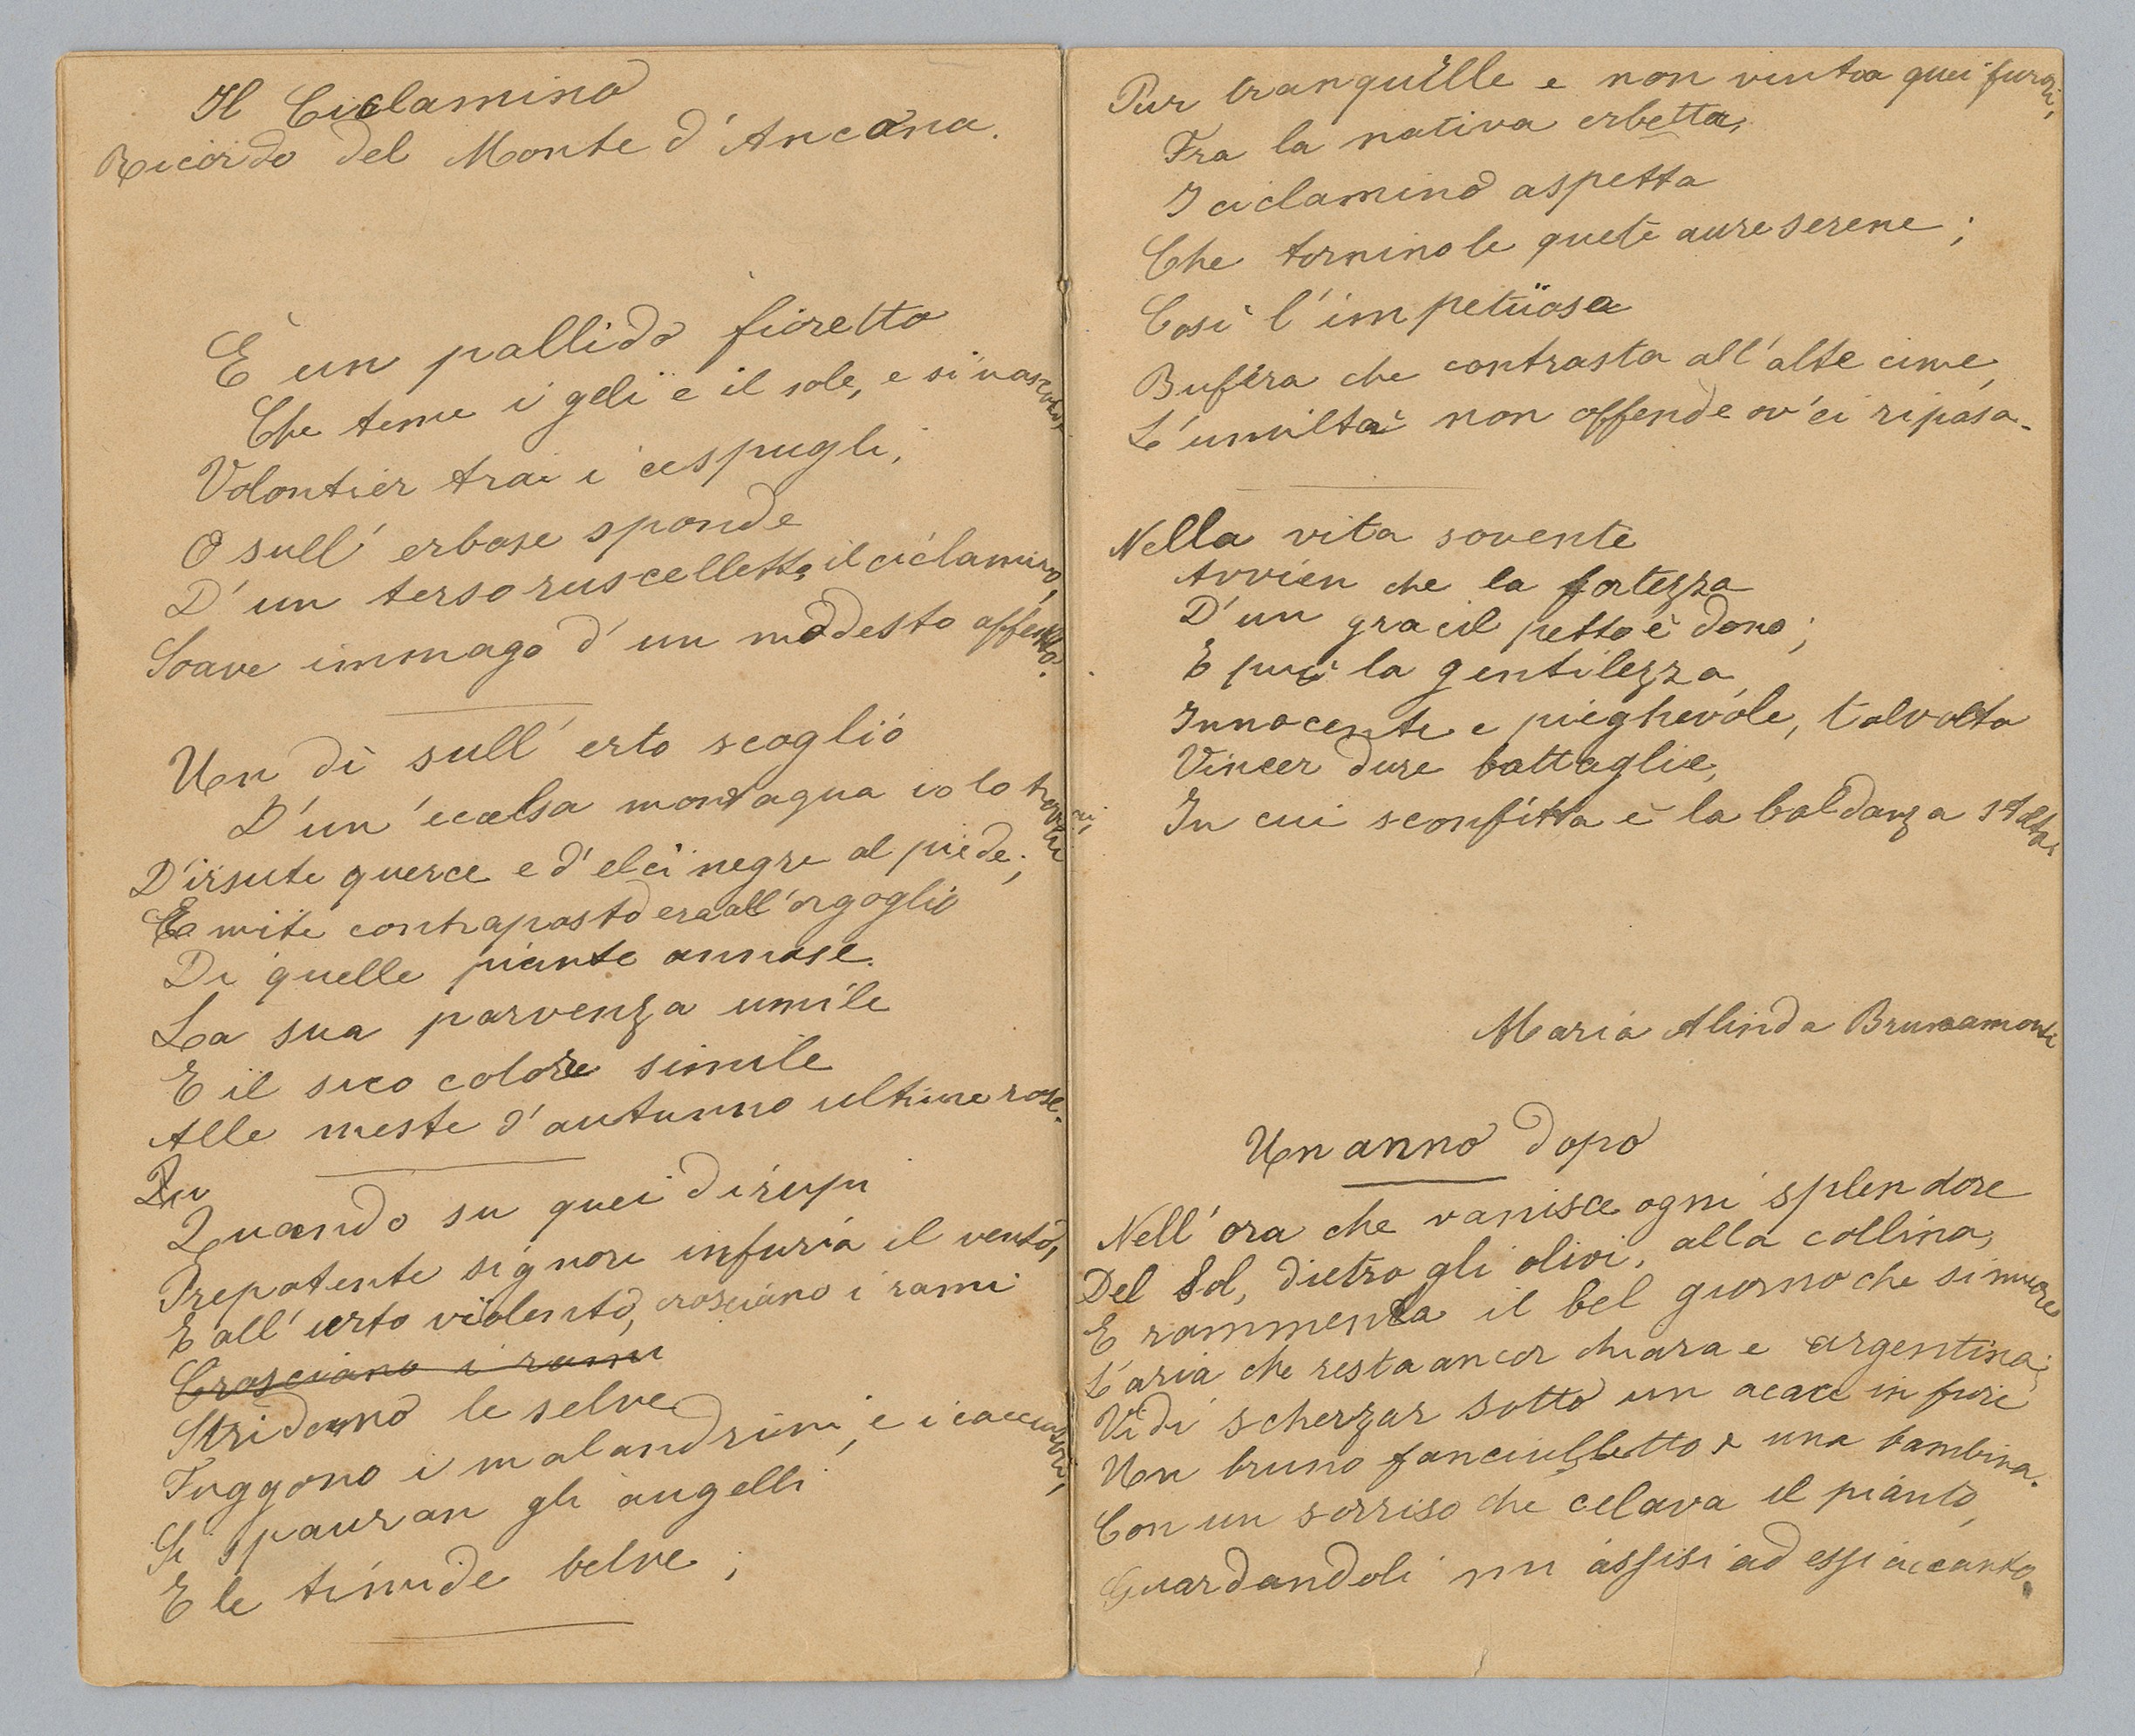 Il Ciclamino
Ricordo del Monte d'Ancona.
È un pallido fioretto
Che teme i geli e il sole, e si nasconde,
Volontier trai i cespugli,
O sull' erbose sponde
D'un terso ruscelletto il ciclamino,
Soave immago d'un modesto affetto.
Un dì sull' erto scoglio
D'un'eccelsa montagna io lo trovai,
D'irsute querce e d'elci negre al piede;
E mite contraposto era all'orgoglio
Di quelle piante annose.
La sua parvenza umile
E il suo colore simile
Alle meste d'autunno ultime rose.
Quando su quei dirupi
Prepotente signore infuria il vento,
E all'urto violento, crosciano i rami
Crosciano i rami
Stridono le selve
Fuggono i malandrini, e i cacciatori,
Si spauran gli augelli
E le timide belve;
Pur tranquille e non vinto a quei furori,
Fra la nativa erbetta,
I ciclamino aspetta
Che tornino le quete aure serene;
Così l'impetüosa
Bufera che contrasta all'alte cime,
L'umiltà non offende ov'ei riposa.
Nella vita sovente
Avvien che la fortezza
D'un gracil petto è dono;
E può la gentilezza
Innocente e pieghevole, talvolta
Vincer dure battaglie,
In cui sconfitta è la baldanza stolta.
Maria Alinda Brunamonti
Un anno dopo
Nell'ora che vanisce ogni splendore
Del Sol, dietro gli olivi, alla collina,
E rammenta il bel giorno che si muore
L'aria che resta ancor chiara e argentina;
Vidi scherzar sotto un acace in fiore
Un bruno fanciulletto e una bambina.
Con un sorriso che celava il pianto,
Guardandoli mi assisi ad essi accanto.